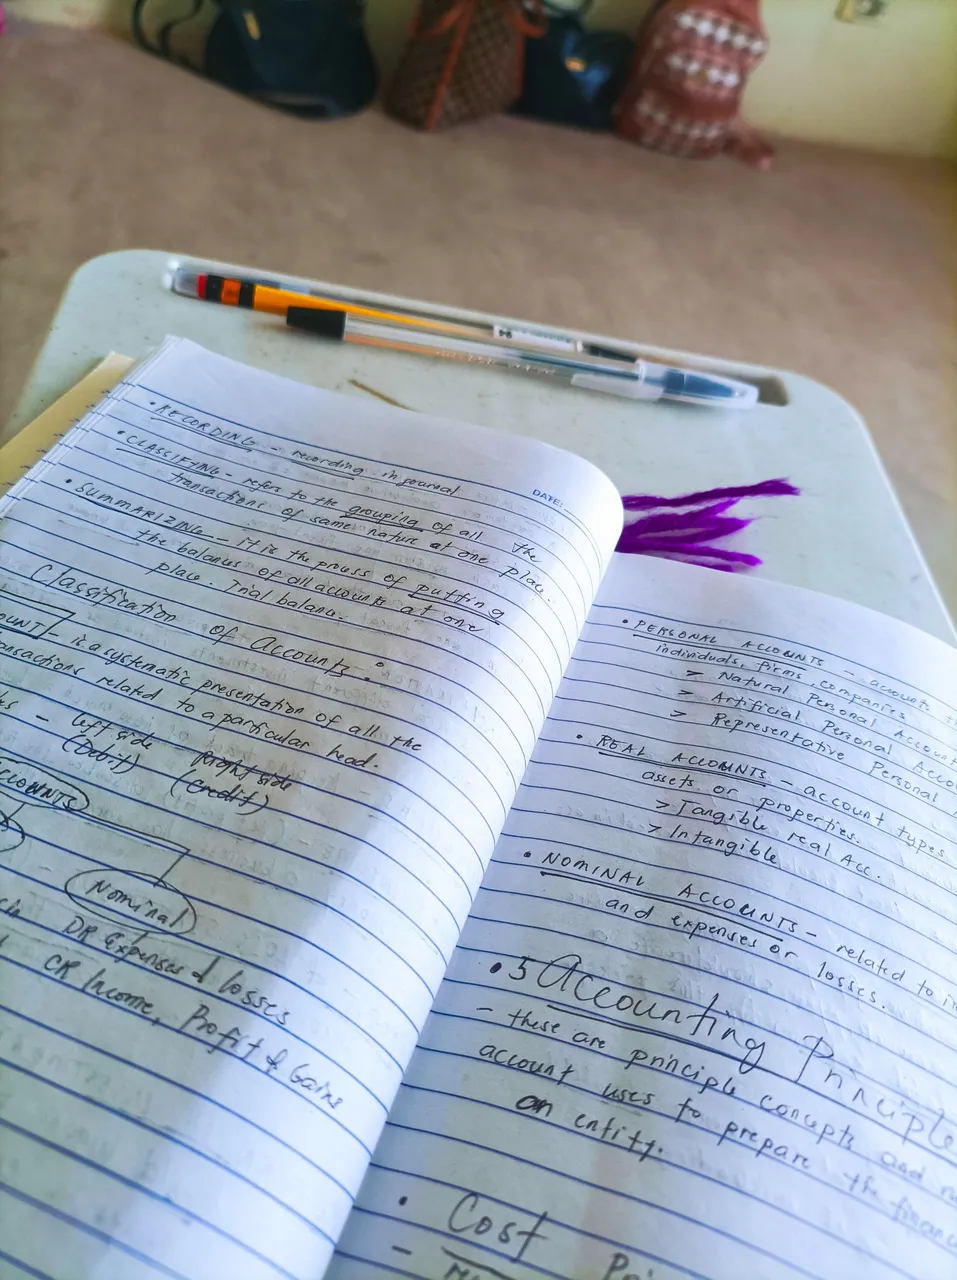 • RECORDING - recording in journal
DATE:
• CLASSIFYING - refers to the grouping of all the
transactions of same nature at one place.
• SUMMARIZING - it is the process of putting
the balances of all accounts at one
place. Trial balance.
Classification of Accounts:
OUNT - is a systematic presentation of all the
ansactions related to a particular head.
- left side Right side
(Debit) (Credit)
CCOUNTS
Nominal
DR Expenses & losses
CR Income, Profit & Gains
• PERSONAL ACCOUNTS - accounts
individuals, firms, companies
> Natural Personal Account
> Artificial Personal Acco
> Representative Personal
• REAL ACCOUNTS - account types
assets or properties.
> Tangible real Acc.
> Intangible
• NOMINAL ACCOUNTS - related to in
and expenses or losses.
• 5 Accounting Principle
- these are principle concepts and
account uses to prepare the financ
an entity.
• Cost